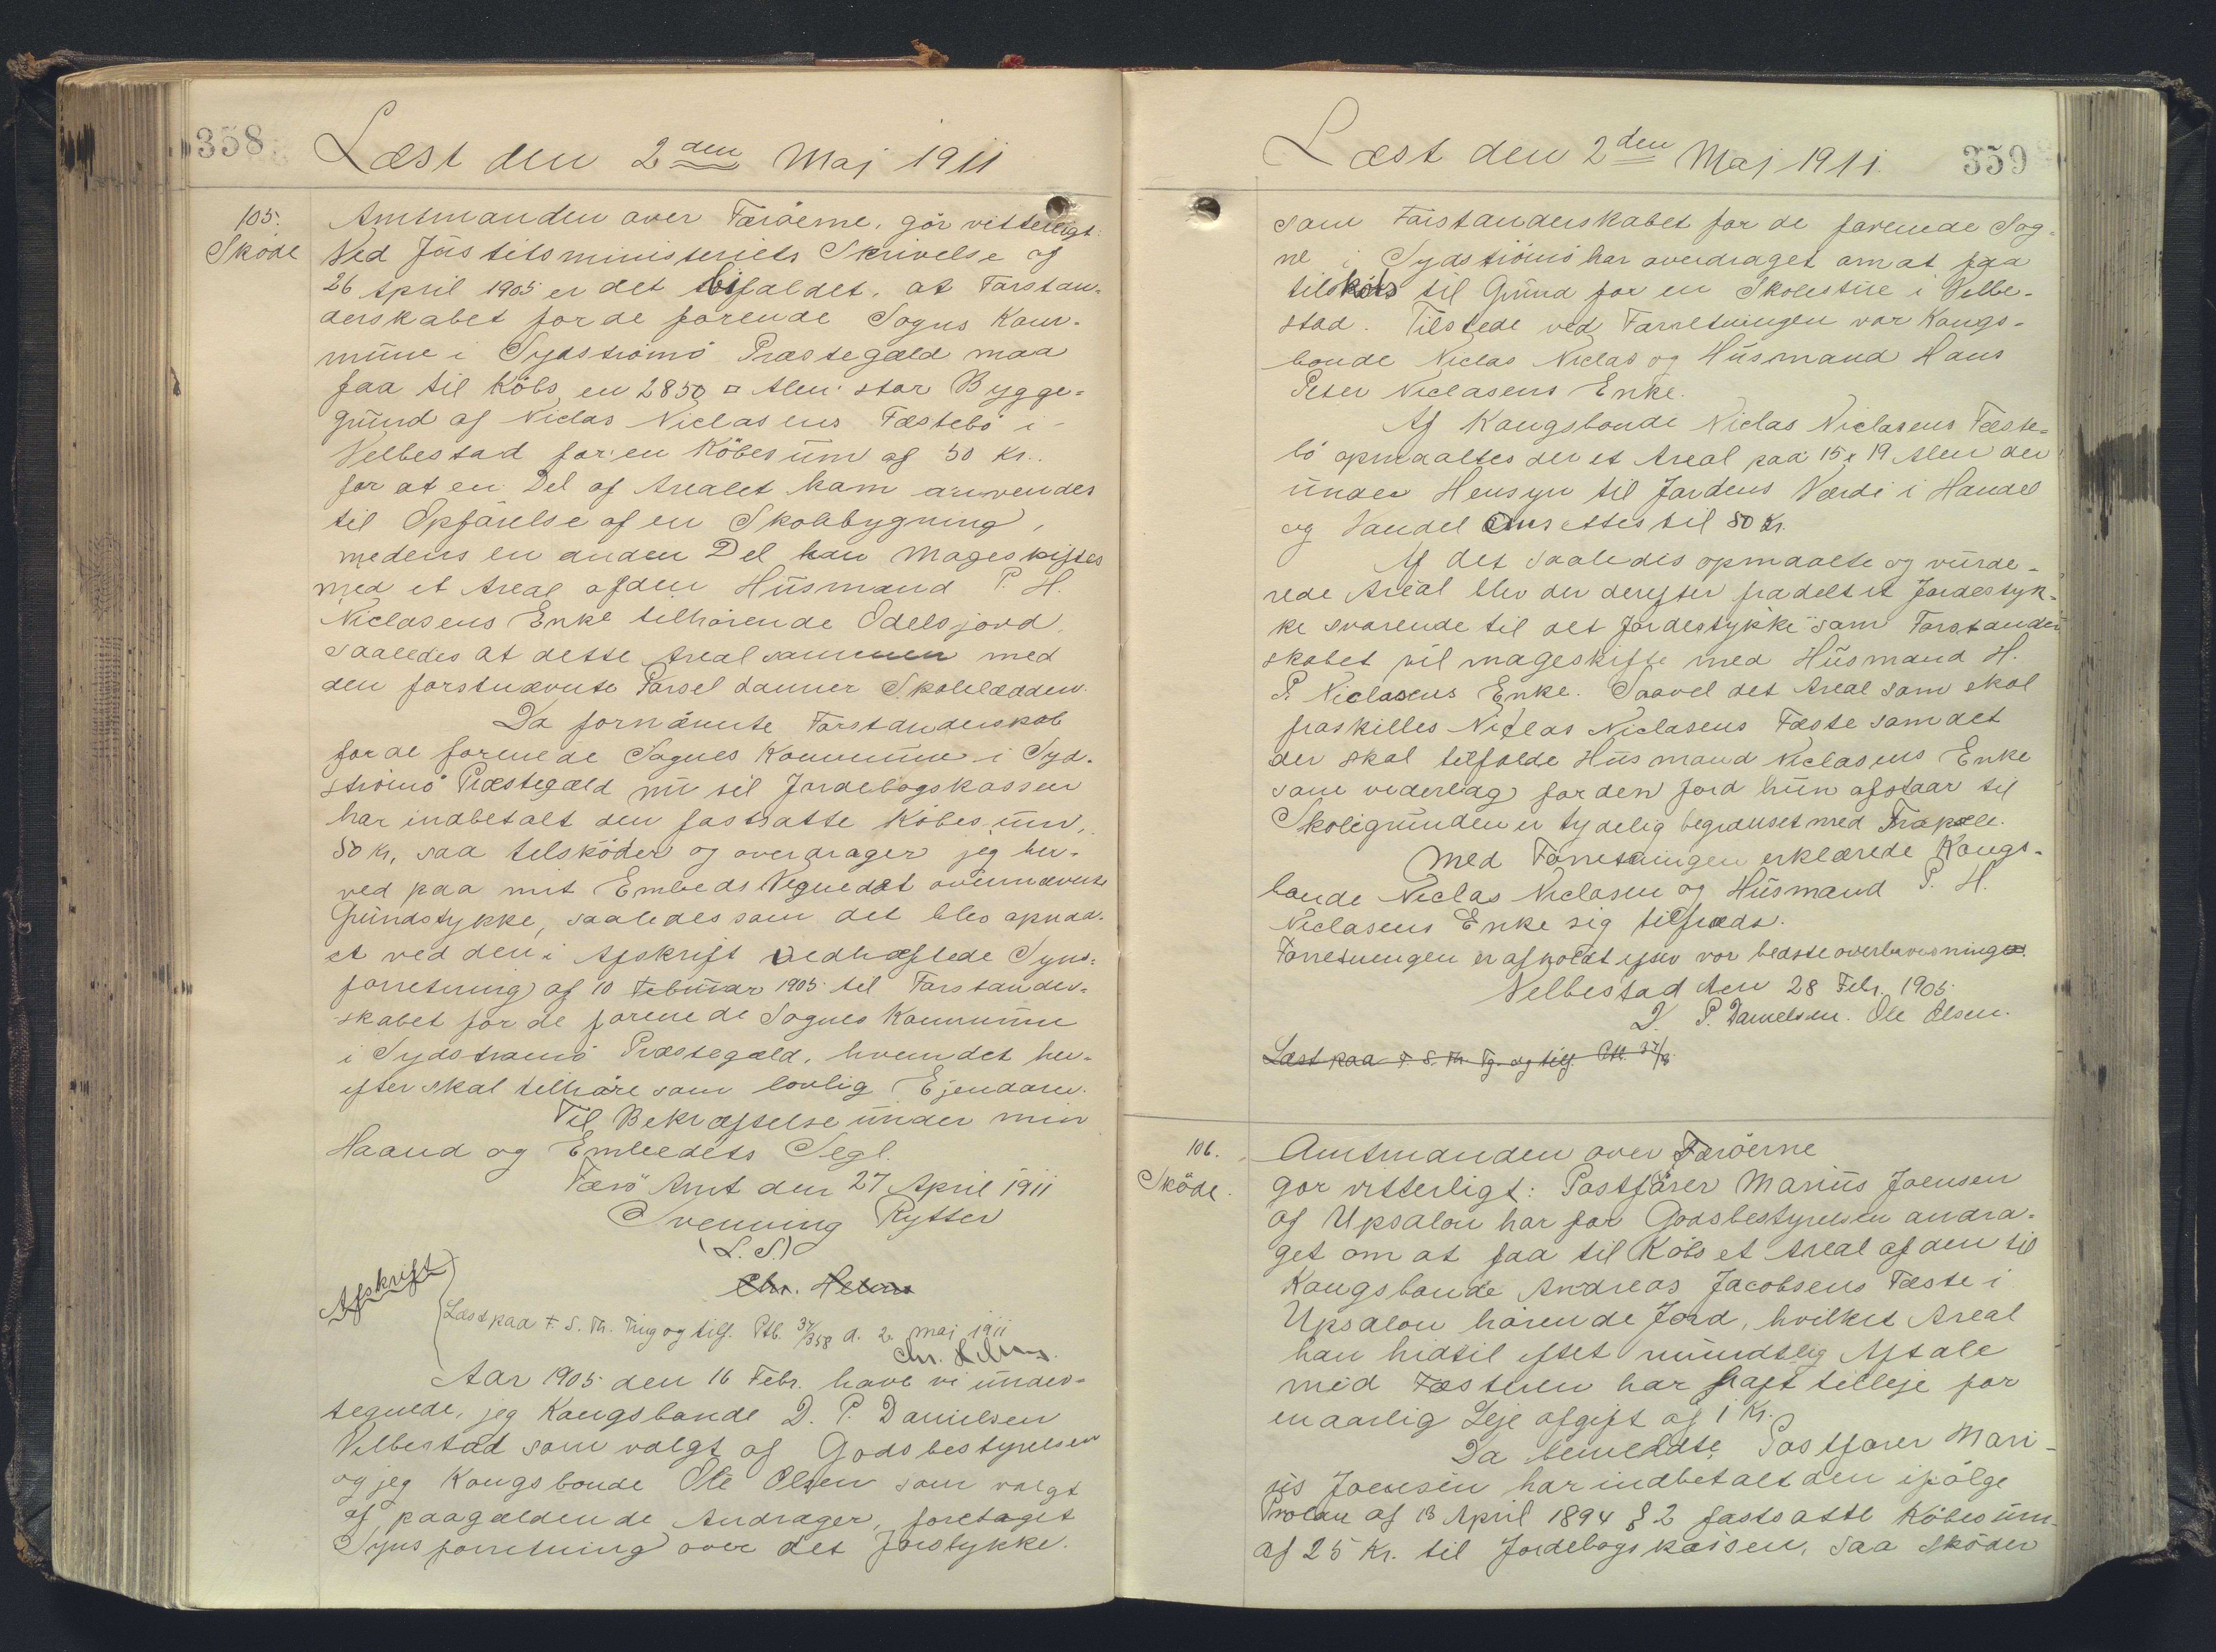 358
Læst den 2den Maj 1911
105.
Sköde
Amtmanden over Færöerne, gör vitterligt:
Ved Justitsministeriets Skrivelse af
26 April 1905 er det bifaldet, at Forstan-
derskabet for de forende Sogns Kom-
mune i Sydströmö Præstegæld maa
faa til Köbs en 2850 □ Alen stor Bygge-
grund af Niclas Niclasens Fæstebö i
Velbestad for en Köbesum af 50 Kr.
for at en Del af Arealet kam anvendes
til Opförelse af en Skolebygning,
medens en anden Del kan Mageskiftes
med et Areal af den Husmand P. H.
Niclasens Enke tilhörende Odelsjord,
saaledes at dette Areal sammen med
den forstnævnte Parsel danner Skolelodden.
Da fornævnte Forstanderskab
for de forenede Sognes Kommune i Syd-
strömö Præstegæld nu til Jordebogskassen
har indbetalt den fastsatte Köbesum,
50 Kr, saa tilsköder og overdrager jeg her-
ved paa mit Embeds Vegne dat ovennævnte
Grundstykke, saaledes som det blev opmaa-
et ved den i Afskrift vedhæftede Syns-
forretning af 10 Februar 1905 til Forstander-
skabet for de forenede Sognes Kommune
i Sydstromö Præstegæld, hvem det her-
efter skal tilhöre som lovlig Ejendom.
Til Bekræftelse under min
Haand og Embedets Segl.
Færö Amt den 27 April 1911
Svenning Rytter
(L. S)
Chr. Helms
Afskrift
Læst paa F. S. Th. Ting og tilf. Ptb. 37/358 d. 2. maj 1911
Chr. Helms.
Aar 1905 den 16 Febr. have vi under-
tegnede, jeg Kongsbonde D. P. Danielsen
Velbestad som valgt af Godsbestyrelsen
og jeg Kongsbonde Ole Olsen som valgt
af paagældende Andrager, foretaget
Synsforretning over det Jorstykke.
Læst den 2den Maj 1911.
359
som Forstanderskabet for de forenede Sog-
ne i Sydströmö har overdraget om at faa
tilsköds til Grund for en Skolestue i Velbe-
stad. Tilstede ved Forretningen var Kongs-
bonde Niclas Niclas og Husmand Hans
Peter Niclasens Enke.
Af Kongsbonde Niclas Niclasens Fæste-
bö opmaaltes der et Areal paa 15 x 19 Alen der
under Hensyn til Jordens Værdi i Handel
og Vandel ansættes til 50 Kr.
Af det saaledes opmaalte og vurde-
rede Areal blev der derefter fradelt et Jordestyk-
ke svarende til det Jordestykke som Forstander
skabet vil mageskifte med Husmand H.
P. Niclasens Enke. Saavel det Areal som skal
fraskilles Niclas Niclasens Fæste som det
der skal tilfalde Husmand Niclasens Enke
som vederlag for den Jord hun afstaar til
Skolegrunden er tydelig begrænset med Træpæle.
Med Forretningen erklærede Kongs-
bonde Niclas Niclasen og Husmand P. H.
Niclasens Enke sig tilfreds.
Forretningen er afholdt efter vor bedste overbevisning.
Velbestad den 28 Febr. 1905
D. P. Danielsen. Ole Olsen.
Læst paa F. S. Th. Tg. og tilf. Ptb. 37/
106.
Sköde.
Amtmanden over Færöerne
gör vitterligt: Postförer Marius Joensen
af Upsalon har for Godsbestyrelsen andra-
get om at faa til Köbs et Areal af den til
Kongsbonde Andreas Jacobsens Fæste i
Upsalon hörende Jord, hvilket Areal
han hidtil eftet mundtlig Aftale
med Fæsteren har haft tilleje for
en aarlig Leje afgift af 1 Kr.
Da bemeldte Postförer Mari-
us Joensen har indbetalt den ifölge
Provlov af 13 April 1894 § 2 fastsatte Köbesum
af 25 Kr. til Jordebogskassen, saa sköder